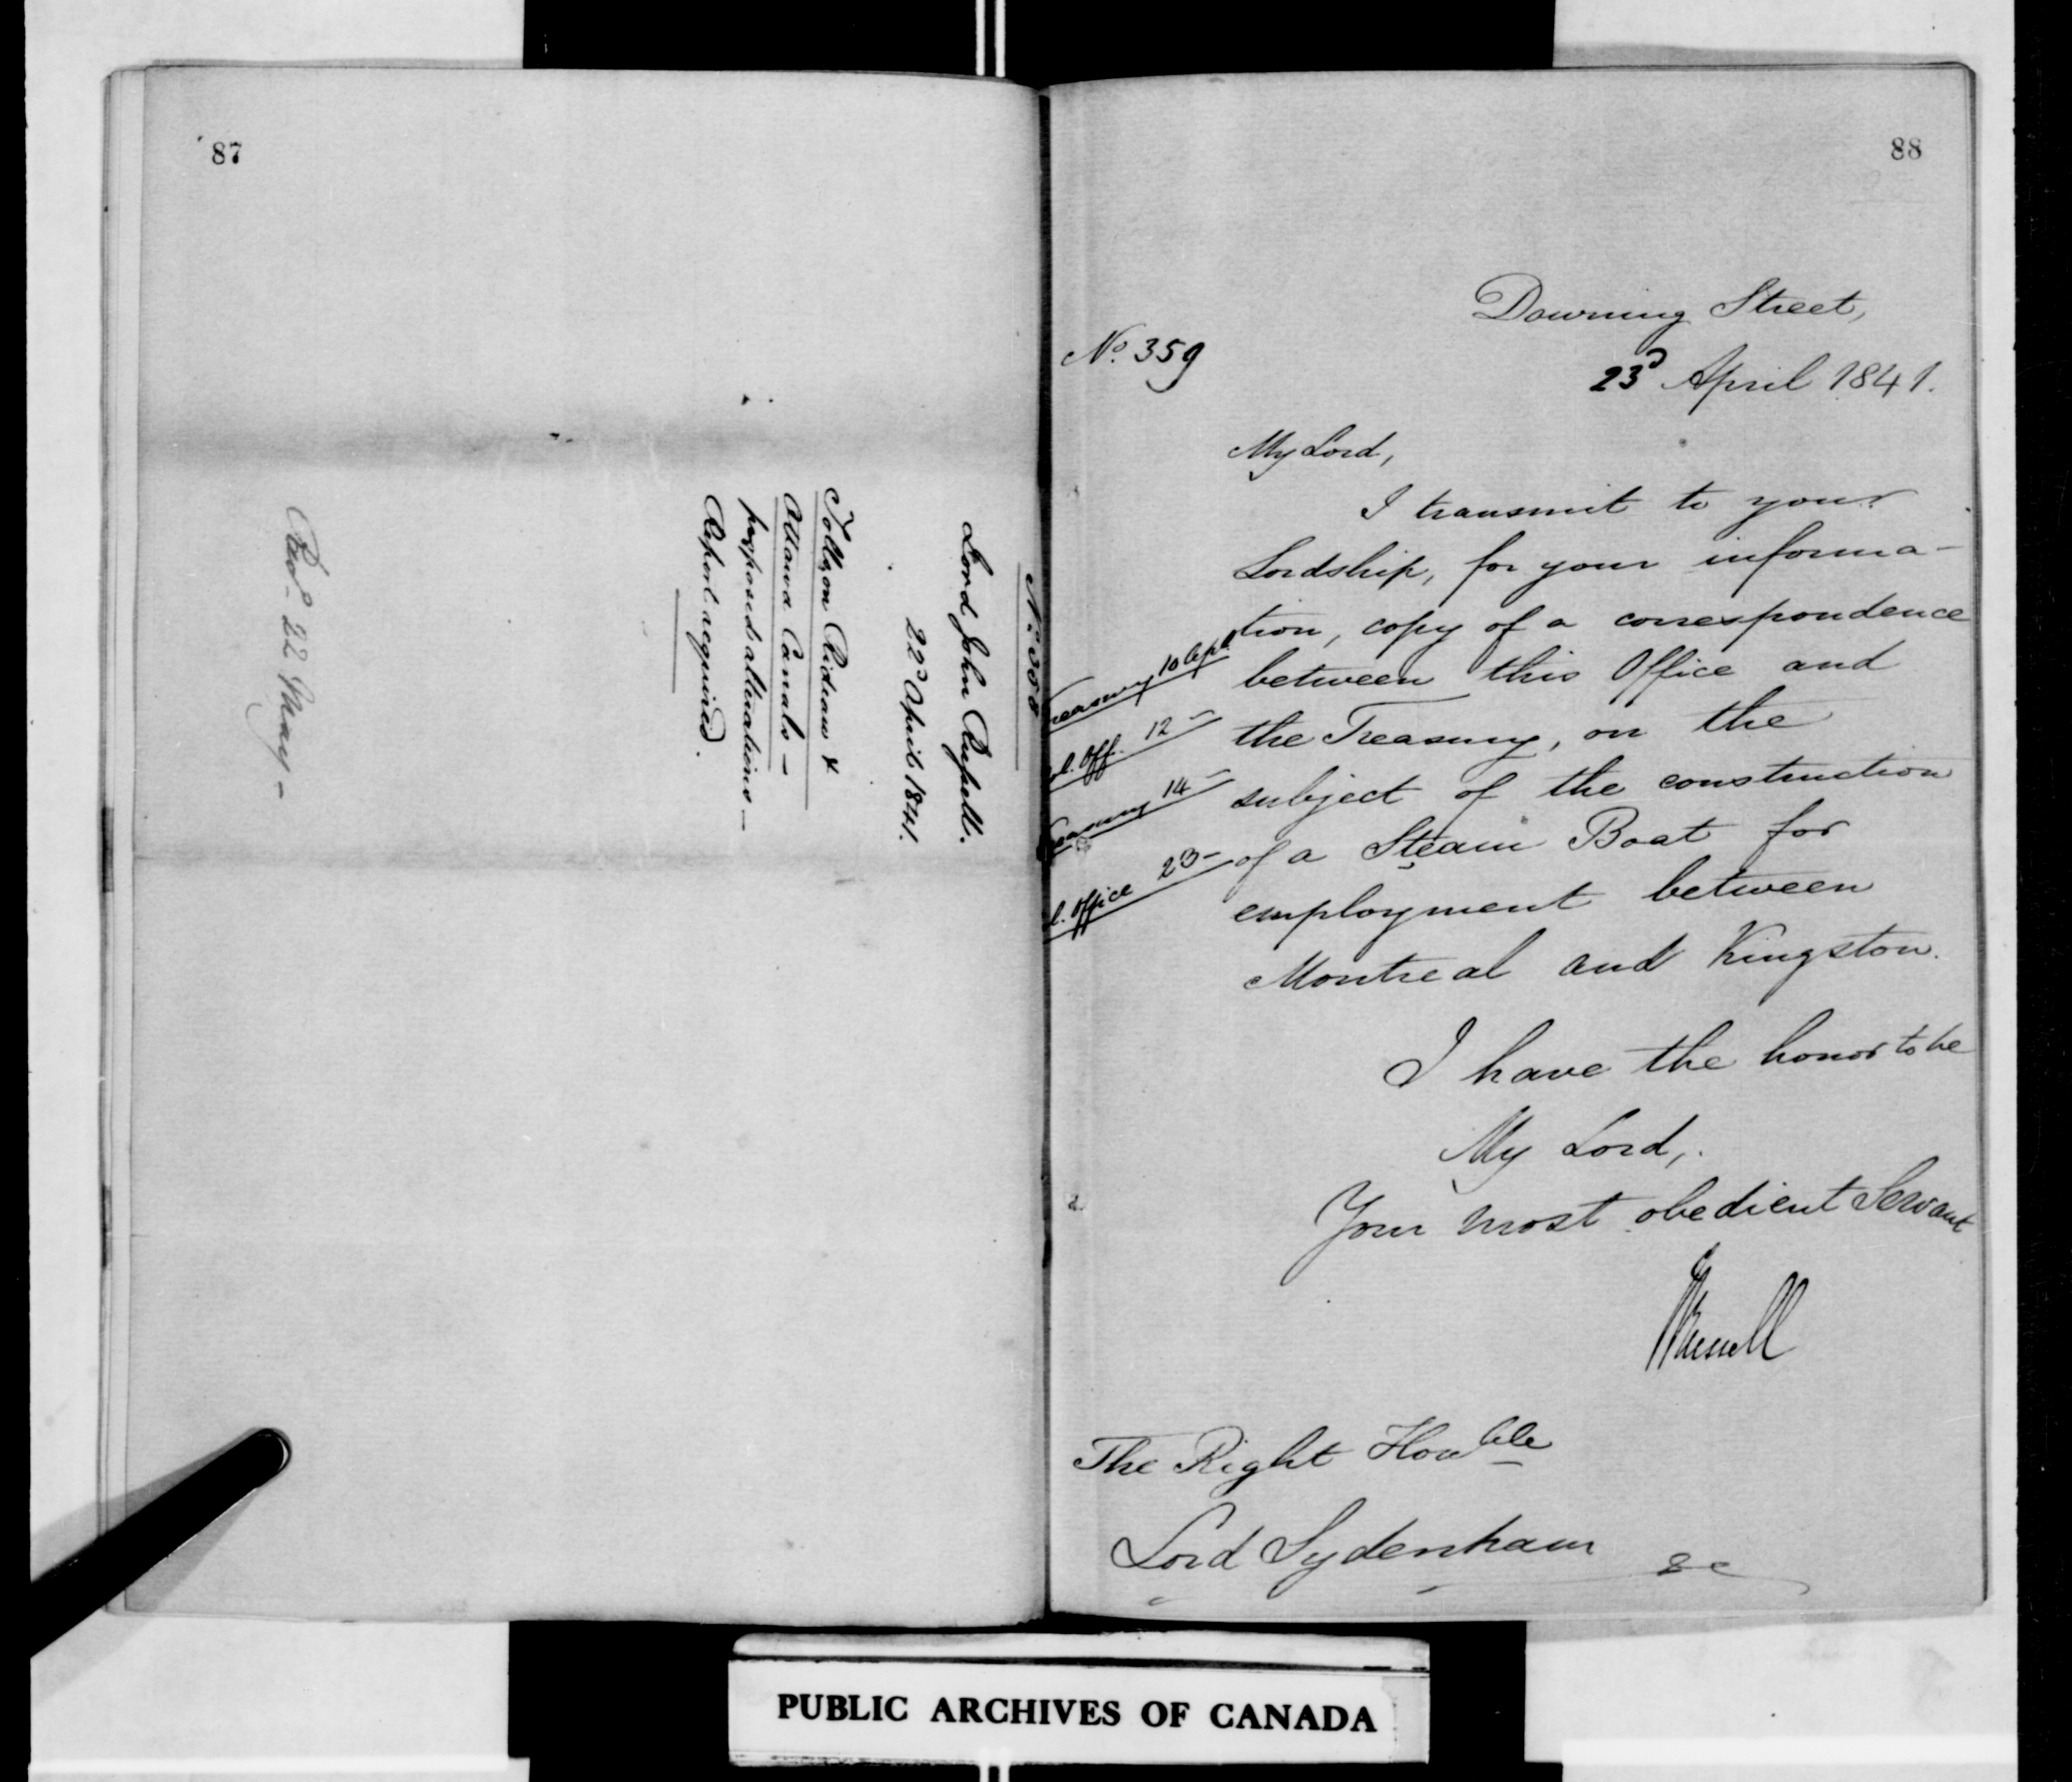 87
No. 358
Lord John Russell.
22d April 1841.
Tolls on Rideau &
Ottawa Canals –
proposed alterations –
Report required.
Recd. 22 May –
88
Downing Street,
No. 359
23d April 1841.
My Lord,
I transmit to your
Lordship, for your informa-
tion, copy of a correspondence
between this Office and
the Treasury, on the
subject of the construction
of a Steam Boat for
employment between
Montreal and Kingston.
Treasury 10 Apl
Col. Off. 12 –
Treasury 14 –
Col. Office 23 –
I have the honor to be
My Lord,
Your most obedient Servant
J Russell
The Right Honble
Lord Sydenham
&c
PUBLIC ARCHIVES OF CANADA